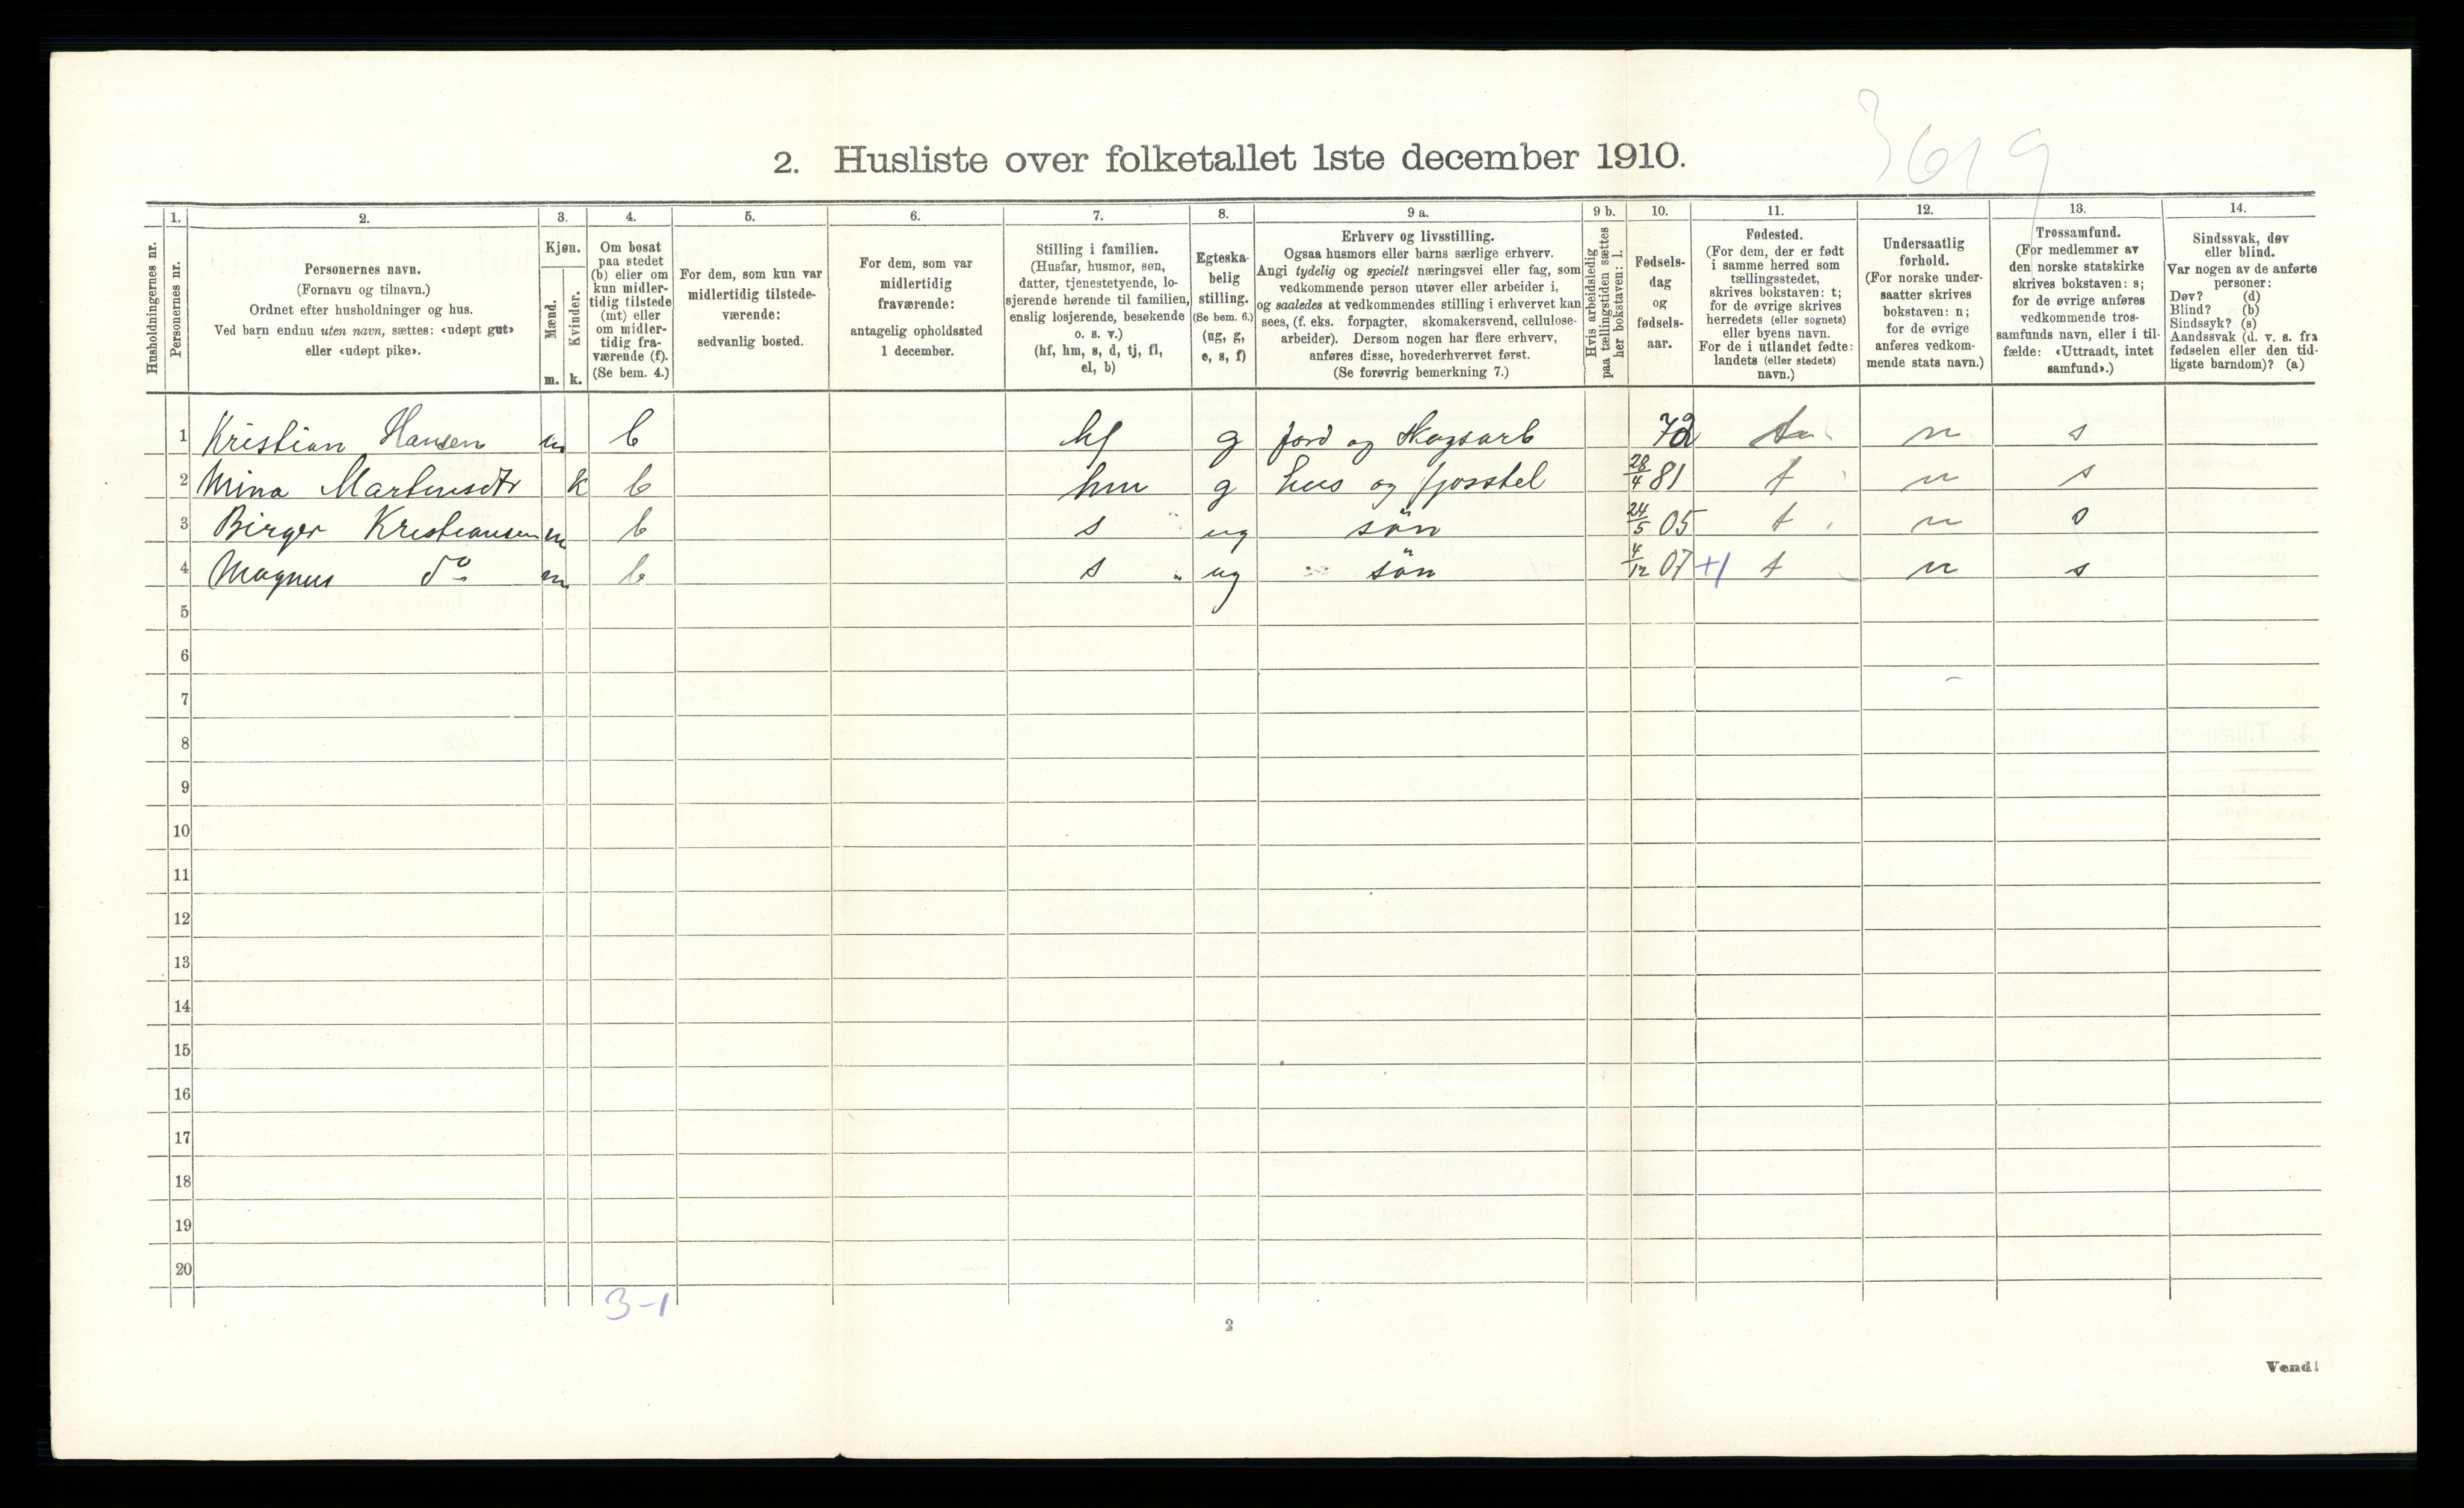 3619
2. Husliste over folketallet 1ste december 1910.
Husholdningernes nr.
1.
Personernes nr.
2.
Personernes navn.
(Fornavn og tilnavn.)
Ordnet efter husholdninger og hus.
Ved barn endnu uten navn, sættes: «udøpt gut»
eller «udøpt pike».
3.
Kjøn.
Mænd.
Kvinder.
m. k.
4.
Om bosat
paa stedet
(b) eller om
kun midler-
tidig tilstede
(mt) eller
om midler-
tidig fra-
værende (f).
(Se bem. 4.)
5.
For dem, som kun var
midlertidig tilstede-
værende:
sedvanlig bosted.
6.
For dem, som var
midlertidig
fraværende:
antagelig opholdssted
1 december.
7.
Stilling i familien.
(Husfar, husmor, søn,
datter, tjenestetyende, lo-
sjerende hørende til familien,
enslig losjerende, besøkende
o. s. v.)
(hf, hm, s, d, tj, fl,
el, b)
8.
Egteska-
belig
stilling.
(Se bem. 6.)
(ug, g,
e, s, f)
9 a.
Erhverv og livsstilling.
Ogsaa husmors eller barns særlige erhverv.
Angi tydelig og specielt næringsvei eller fag, som
vedkommende person utøver eller arbeider i,
og saaledes at vedkommendes stilling i erhvervet kan
sees, (f. eks. forpagter, skomakersvend, cellulose-
arbeider). Dersom nogen har flere erhverv,
anføres disse, hovederhvervet først.
(Se forøvrig bemerkning 7.)
9 b.
Hvis arbeidsledig
paa tællingstiden sættes
her bokstaven: l.
10.
Fødsels-
dag
og
fødsels-
aar.
11.
Fødested.
(For dem, der er født
i samme herred som
tællingsstedet,
skrives bokstaven: t;
for de øvrige skrives
herredets (eller sognets)
eller byens navn.
For de i utlandet fødte:
landets (eller stedets)
navn.)
12.
Undersaatlig
forhold.
(For norske under-
saatter skrives
bokstaven: n;
for de øvrige
anføres vedkom-
mende stats navn.)
13.
Trossamfund.
(For medlemmer av
den norske statskirke
skrives bokstaven: s;
for de øvrige anføres
vedkommende tros-
samfunds navn, eller i til-
fælde: «Uttraadt, intet
samfund».)
14.
Sindssvak, døv
eller blind.
Var nogen av de anførte
personer:
Døv? (d)
Blind? (b)
Sindssyk? (s)
Aandssvak (d. v. s. fra
fødselen eller den tid-
ligste barndom)? (a)
1 Kristian Hansen m b hf g jord og Skogsarb n s
2 Mina Martinsdtr k b hm g hus og fjosstel 28/4 81 t n s
3 Birger Kristiansen m b s ug sön 24/5 05 t n s
4 Magnus do m b s ug sön 4/12 07 +1 t n s
5
6
7
8
9
10
11
12
13
14
15
16
17
18
19
20
3-1
2
Vend!